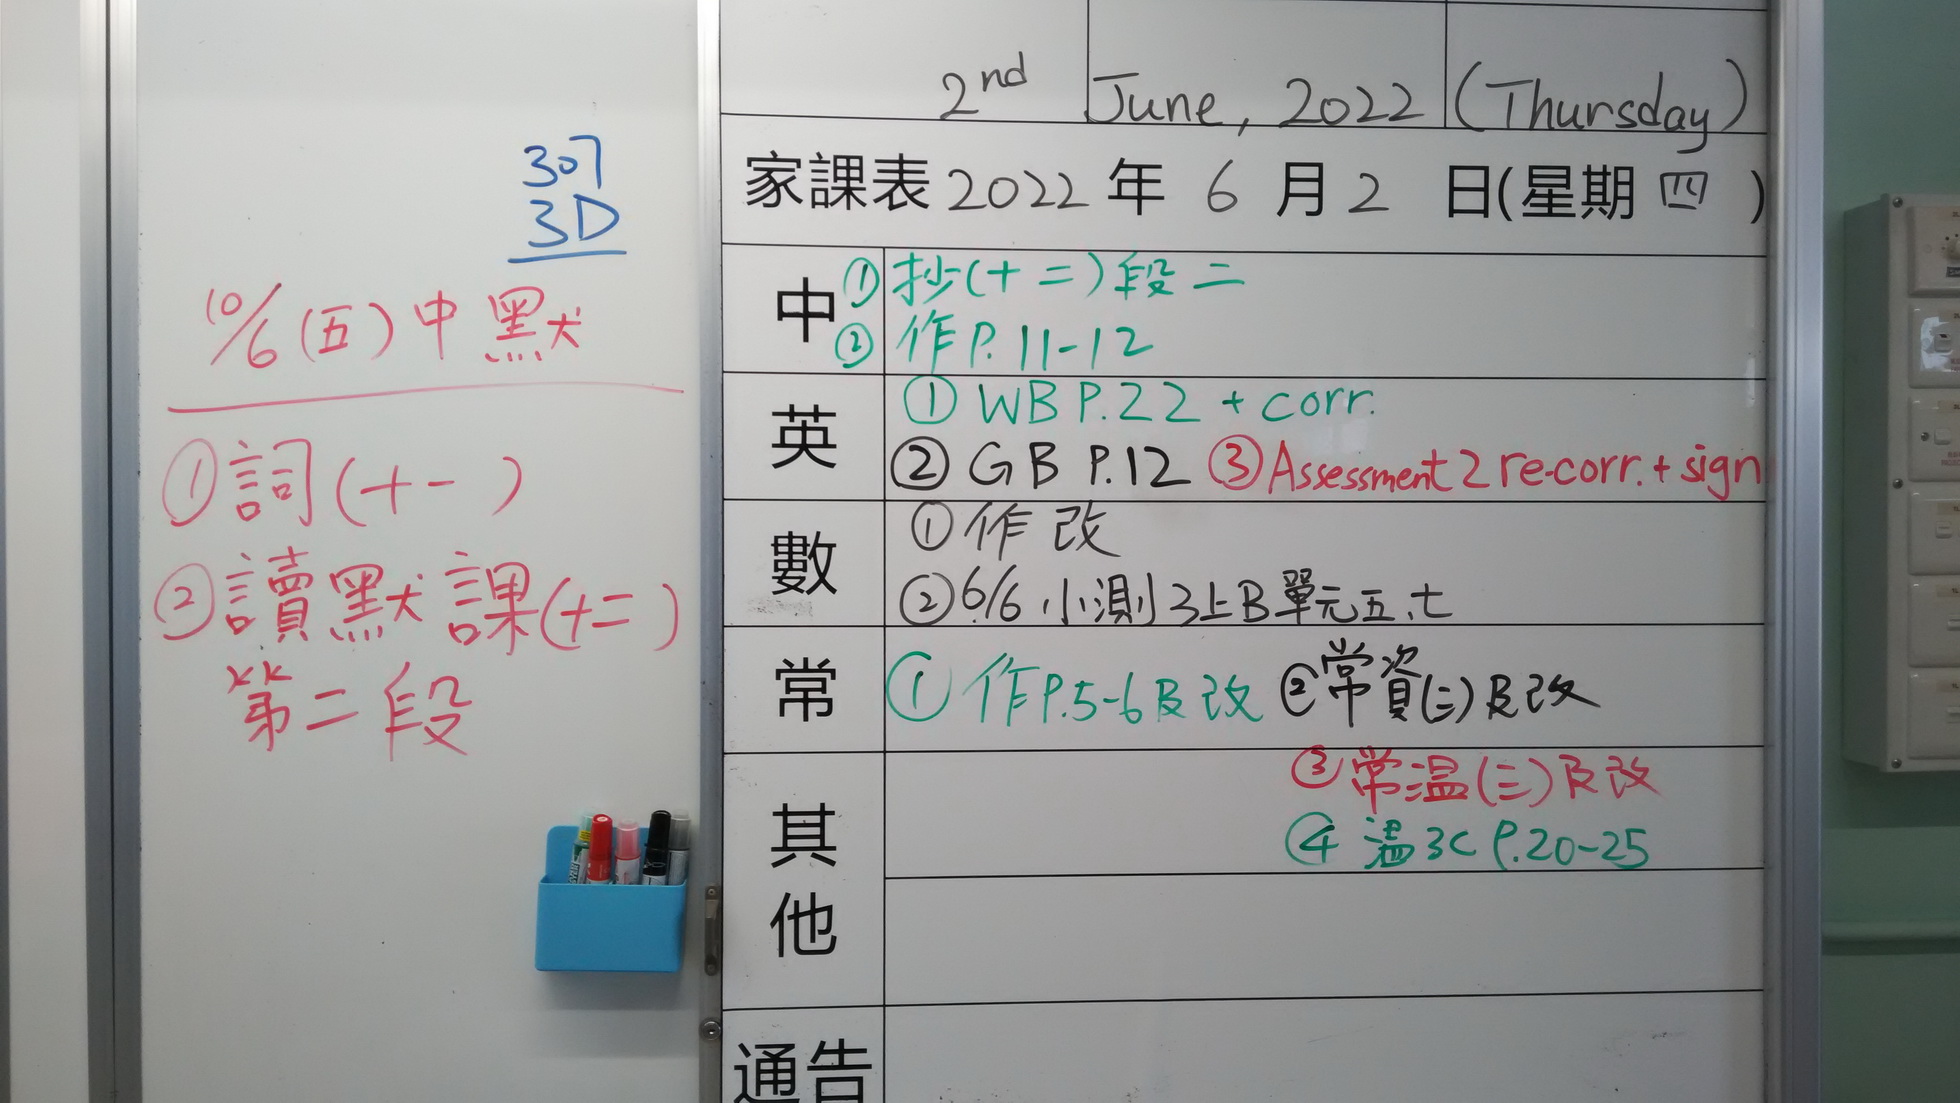 307
3D
10/6(五)中默
①詞(十一)
②讀默課(十二)
第二段
2nd June, 2022 (Thursday)
家課表2022年6月2日(星期四)
中
①抄(十二)段二
②作P.11-12
英
①WB P.22 + corr.
②GB P.12 ③Assessment 2 re-corr. + sign
數
①作改
②6/6小測3上B單元五、七
常
①作P.5-6及改 ②常資(二)及改
其他
③常温(三)及改
④温3C P.20-25
通告